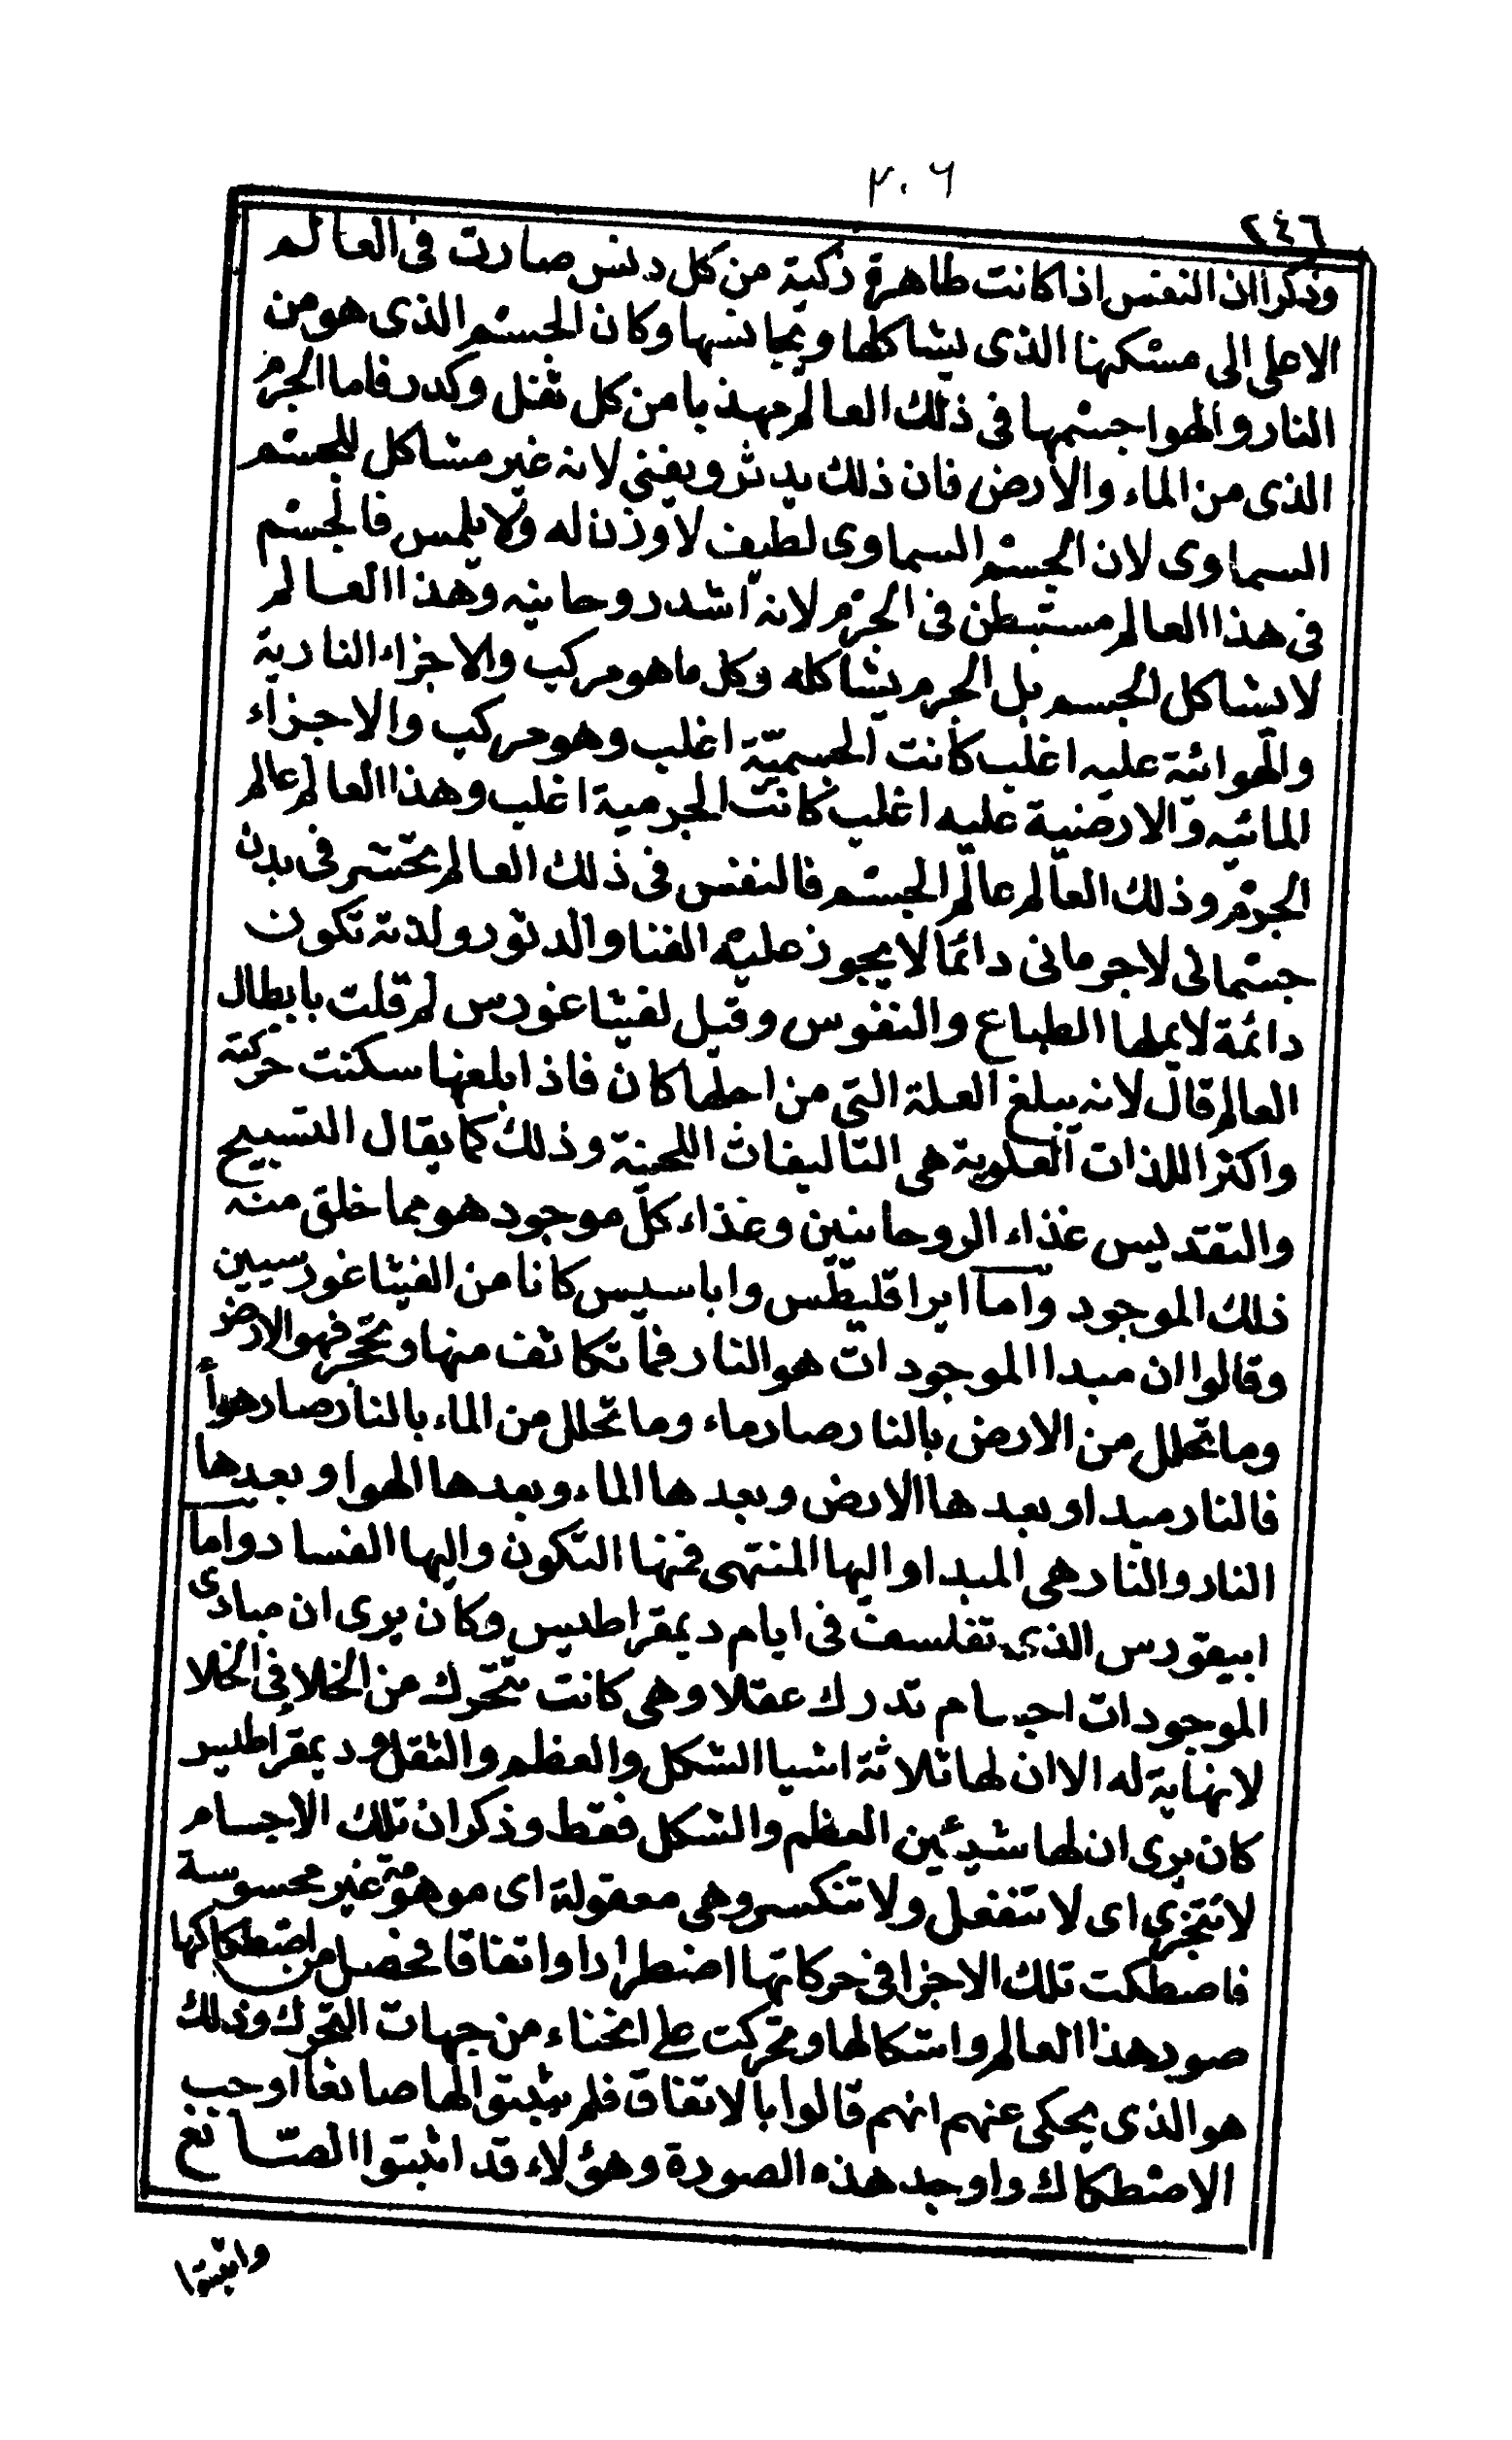 ٢٠٦
٢٤٦
وذكرا ان النفس اذا كانت طاهرة زكية من كل دنس صارت فى العالم
الاعلى الى مسكنها الذى يشاكلها ويجانسها وكان الجسم الذى هو من
النار والهوا جسمها فى ذلك العالم مهذبا من كل ثقل وكدر فاما الجرم
الذى من الماء والارض فان ذلك يدثر ويفنى لانه غير مشاكل للجسم
السماوى لان الجسم السماوى لطيف لا وزن له ولا يلمس فالجسم
فى هذا العالم مستبطن فى الجرم لانه اشد روحانيه وهذا العالم
لا يشاكل الجسم بل الجرم يشاكله وكل ما هو مركب والاجزاء النارية
والهوائية عليه اغلب كانت الجسمية اغلب وهو مركب والاجزاء
المائيه والارضية عليه اغلب كانت الجرمية اغلب وهذا العالم عالم
الجرم وذلك العالم عالم الجسم فالنفس فى ذلك العالم تحشر فى بدن
جسمانى لا جرمانى دائما لا يجوز عليه الفنا والدثور ولذته تكون
دائمة لا يملها الطباع والنفوس وقيل لفيثاغورس لم قلت بابطال
العالم قال لانه يبلغ العلة التى من اجلها كان فاذا بلغها سكنت حركته
واكثر اللذات العلوية هى التاليفات اللحنية وذلك كما يقال التسبيح
والتقديس غذاء الروحانيين وغذاء كل موجود هو مما خلق منه
ذلك الموجود واما ايراقليطس واباسيس كانا من الفيثاغورسيين
وقالوا ان مبدا الموجودات هو النار فما تكاثف منها وتحجر فهو الارض
وما تحلل من الارض بالنار صار ماء وما تحلل من الماء بالنار صار هوأ
فالنار مبدا وبعدها الارض وبعدها الماء وبعدها الهوا وبعدها
النار والنار هى المبدا واليها المنتهى فمنها التكون واليها الفساد واما
ابيقورس الذى تفلسف فى ايام ديمقراطيس وكان يرى ان مبادى
الموجودات اجسام تدرك عقلا وهى كانت تتحرك من الخلا فى الخلا
لا نهاية له الا ان لها ثلاثة اشيا الشكل والعظم والثقل وديمقراطيس
كان يرى ان لها شيئين العظم والشكل فقط وذكر ان تلك الاجسام
لا تتجزى اى لا تنفعل ولا تنكسر وهى معقولة اى موهومة غير محسوسة
فاصطكت تلك الاجزا فى حركاتها اضطرارا واتفاقا فحصل من اصطكاكها
صور هذا العالم واشكالها وتحركت على انحناء من جهات التحرك وذلك
هو الذى يحكى عنهم انهم قالوا بالاتفاق فلم يثبتوا لها صانعا اوجب
الاصطكاك واوجد هذه الصورة وهؤلاء قد اثبتوا الصانع
واثبتوا